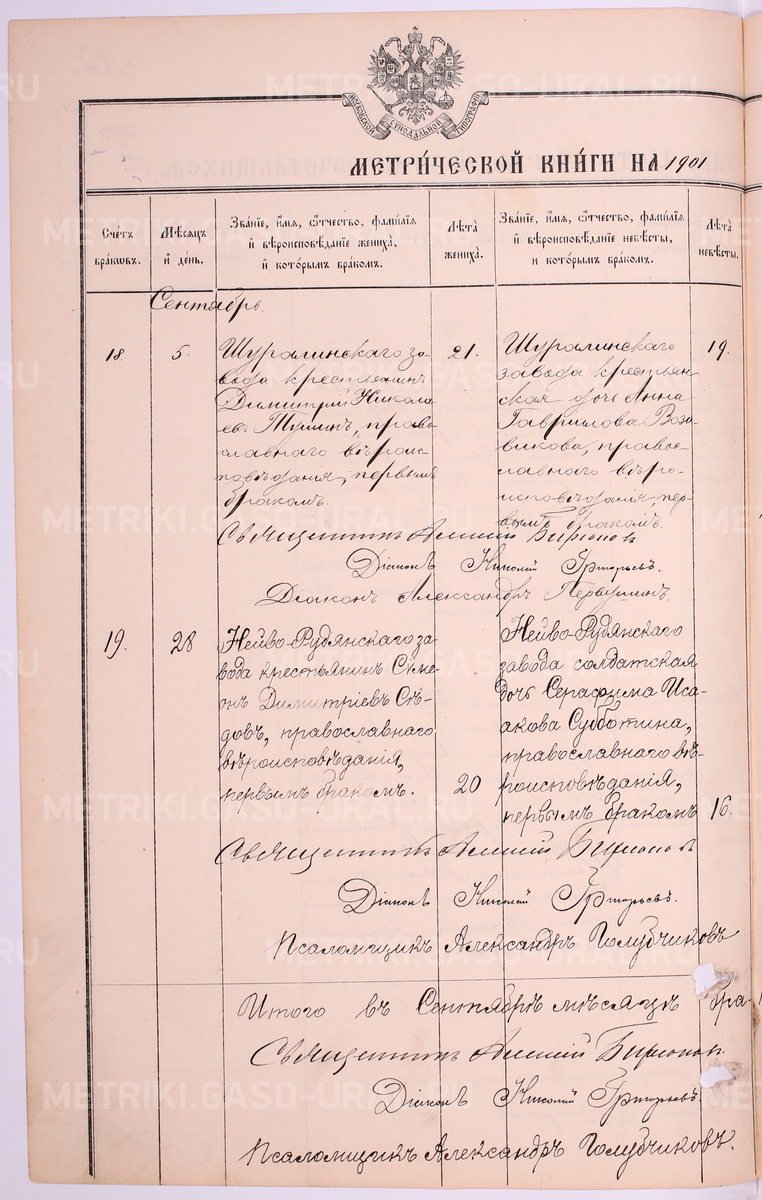 МОСКОВСКОЙ СѴНОДАЛЬНОЙ ТИПОГРАФІИ
МЕТРИ́ЧЕСКОЙ КНИ́ГИ НА 1901
Сче́тъ бра́ковъ.
Мѣ́сяцъ и҆ де́нь.
Зва́нїе, и҆́мя, ѻ҆́тчество, фами́лїя
и҆ вѣроисповѣ́данїе жениха̀,
и҆ кото́рымъ бра́комъ.
Лѣ́та жениха̀.
Зва́нїе, и҆́мя, ѻ҆́тчество, фами́лїя
и҆ вѣроисповѣ́данїе невѣ́сты,
и҆ кото́рымъ бра́комъ.
Лѣ́та невѣ́сты.
Сентябрь.
18.
5.
Шуралинскаго за-
вода крестьянинъ
Димитрій Никола-
евъ Тупинъ, право
славнаго вѣроис
повѣданія, первымъ
бракомъ.
21.
Шуралинскаго
завода крестьян-
ская дочь Анна
Гаврилова Возо-
викова, правос-
лавнаго вѣро-
исповѣданія, пер-
вымъ бракомъ.
19.
Священникъ Алексій
Діаконъ Николай Григорьевъ.
Діаконъ Александръ Первушинъ.
19.
28
Нейво-Рудянскаго за-
вода крестьянинъ Симе-
онъ Димитріевъ Сѣ-
довъ, православнаго
вѣроисповѣданія,
первымъ бракомъ.
20
Нейво-Рудянскаго
завода солдатская
дочь Серафима Иса-
акова Субботина,
православнаго вѣ-
роисповѣданія,
первымъ бракомъ
16.
Священникъ Алексій
Діаконъ Николай Григорьевъ.
Псаломщикъ Александръ Голубчиковъ
Итого въ Сентябрѣ мѣсяцѣ бра-
Священникъ Алексій
Діаконъ Николай Григорьевъ.
Псаломщикъ Александръ Голубчиковъ.
METRIKI.GASO-URAL.RU